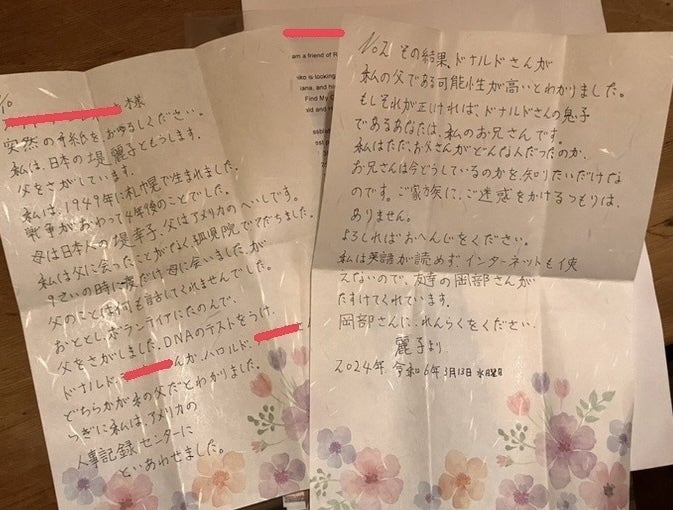 No1
様
突然の手紙をおゆるしください。
私は、日本の堤麗子ともうします。
父をさがしています。
私は、1949年に札幌で生まれました。
戦争がおわって4年後のことでした。
母は日本人の堤幸子、父はアメリカのへいしです。
私は父に会ったことがなく、孤児院でそだちました。
9さいの時に一度だけ母に会いましたが
父のことは何も話してくれませんでした。
おととし、ボランティアにたのんで、
父をさがしました。DNAのテストをうけ、
ドナルド、さんか、ハロルド、
どちらかが私の父だとわかりました。
つぎに私は、アメリカの
人事記録センターに
といあわせました。
am a friend of R
iko is looking
iana, and his
Find My
ld and H
No2 その結果、ドナルドさんが
私の父である可能性が高いとわかりました。
もしそれが正ければ、ドナルドさんの息子
であるあなたは、私のお兄さんです。
私はただ、お父さんがどんな人だったのか、
お兄さんは今どうしているのかを知りたいだけな
のです。ご家族に、ご迷惑をかけるつもりは、
ありません。
よろしければおへんじをください。
私は英語が読めず、インターネットも使
えないので、友達の岡部さんが
たすけてくれています。
岡部さんに、れんらくをください。
麗子より
2024年 令和6年3月13日 水曜日